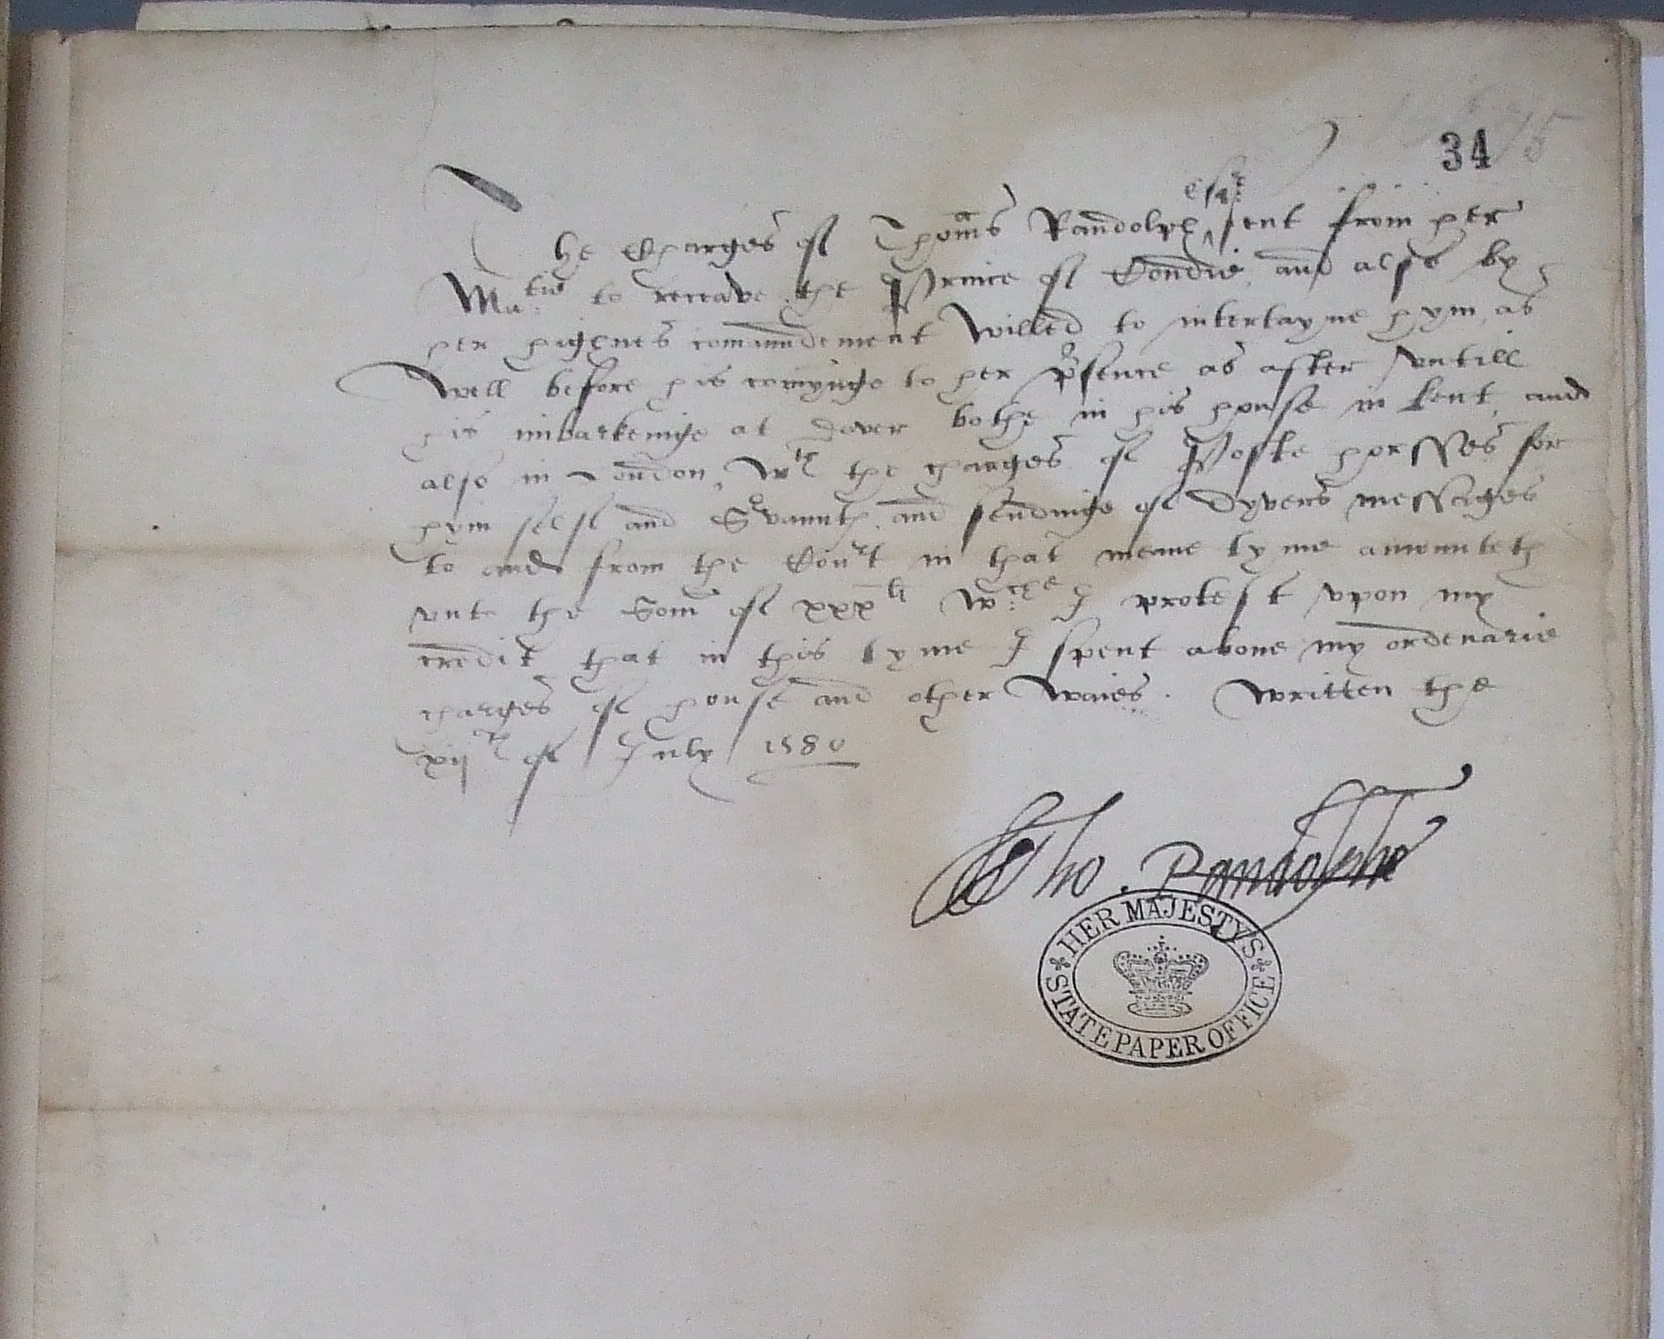 34
esqr
The Charges of Thomas Randolphe sent from her
Matie to receave the Prince of Condie, and also by
her highnes commundement willed to intertayne hym as
well before his comynge to her psence as after vntill
his imbarkenige at dover bothe in his house in kent, and
also in London, wth the charges of Poste horsses for
hym self and Svaunts, and sendinge of dyvers messages
to and from the Court in that meane tyme amounteth
vnto the Som of xxxli wche I protest vpon my
credit that in this tyme I spent above my ordenarie
charges of house and other waies. Written the
xijth of July 1580
Tho. Randolphe
HER MAJESTYS
STATE PAPER OFFICE